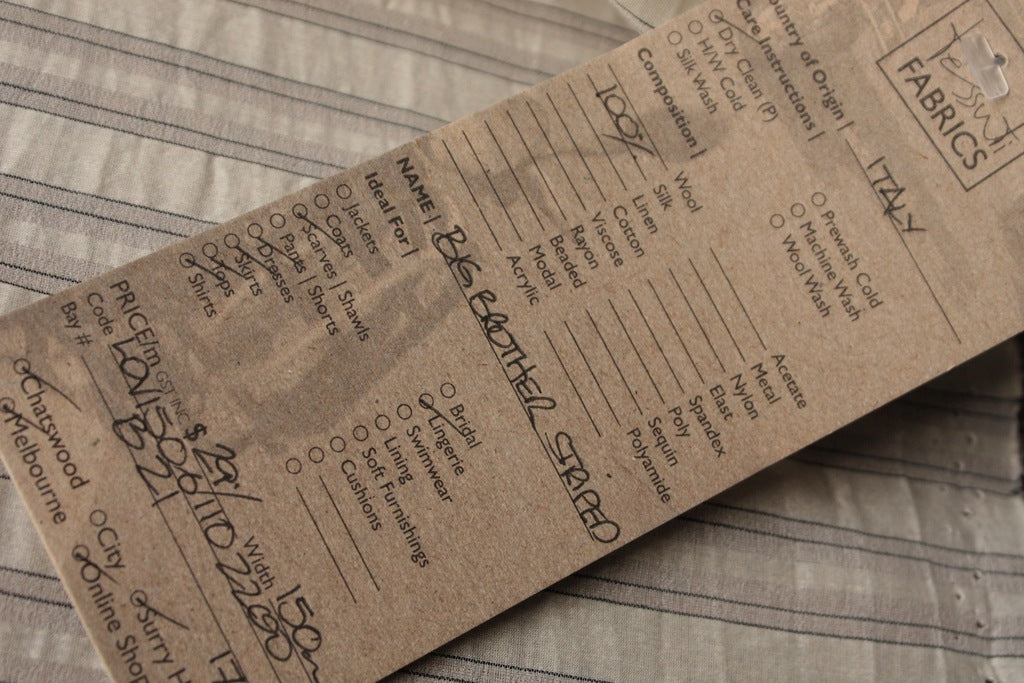 Tessuti
FABRICS
ountry of Origin | ITALY
Care Instructions |
Dry Clean (P)
H/W Cold
Silk Wash
Prewash Cold
Machine Wash
Wool Wash
Composition |
Wool
Silk
100% Linen
Cotton
Viscose
Rayon
Beaded
Modal
Acrylic
Acetate
Metal
Nylon
Elast
Spandex
Poly
Sequin
Polyamide
NAME | BIG BROTHER STRIPED
Ideal For |
Jackets
Coats
Scarves | Shawls
Pants | Shorts
Dresses
Skirts
Tops
Shirts
Bridal
Lingerie
Swimwear
Lining
Soft Furnishings
Cushions
PRICE/m GST INC $ 29/ Width 150m
Code
Bay # B21
Chatswood
City
Surry H
Melbourne
Online Shop